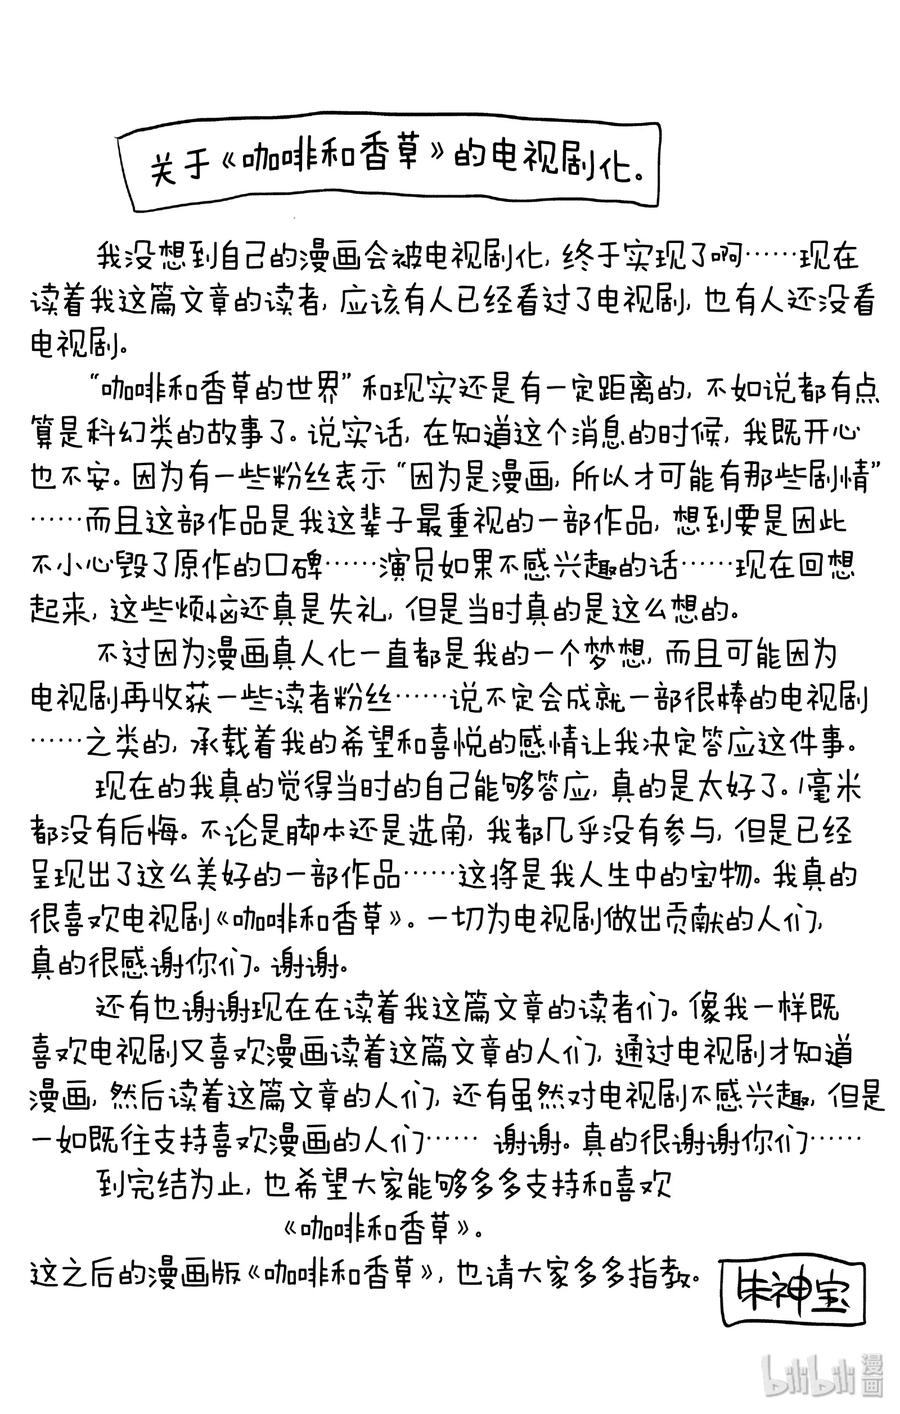 关于《咖啡和香草》的电视剧化。
我没想到自己的漫画会被电视剧化,终于实现了啊……现在
读着我这篇文章的读者,应该有人已经看过了电视剧,也有人还没看
电视剧。
“咖啡和香草的世界”和现实还是有一定距离的,不如说都有点
算是科幻类的故事了。说实话,在知道这个消息的时候,我既开心
也不安。因为有一些粉丝表示“因为是漫画,所以才可能有那些剧情”
……而且这部作品是我这辈子最重视的一部作品,想到要是因此
不小心毁了原作的口碑……演员如果不感兴趣的话……现在回想
起来,这些烦恼还真是失礼,但是当时真的是这么想的。
不过因为漫画真人化一直都是我的一个梦想,而且可能因为
电视剧再收获一些读者粉丝……说不定会成就一部很棒的电视剧
……之类的,承载着我的希望和喜悦的感情让我决定答应这件事。
现在的我真的觉得当时的自己能够答应,真的是太好了。1毫米
都没有后悔。不论是脚本还是选角,我都几乎没有参与,但是已经
呈现出了这么美好的一部作品……这将是我人生中的宝物。我真的
很喜欢电视剧《咖啡和香草》。一切为电视剧做出贡献的人们,
真的很感谢你们。谢谢。
还有也谢谢现在在读着我这篇文章的读者们。像我一样既
喜欢电视剧又喜欢漫画读着这篇文章的人们,通过电视剧才知道
漫画,然后读着这篇文章的人们,还有虽然对电视剧不感兴趣,但是
一如既往支持喜欢漫画的人们…… 谢谢。真的很谢谢你们……
到完结为止,也希望大家能够多多支持和喜欢
《咖啡和香草》。
这之后的漫画版《咖啡和香草》,也请大家多多指教。
朱神宝
bilibili漫画